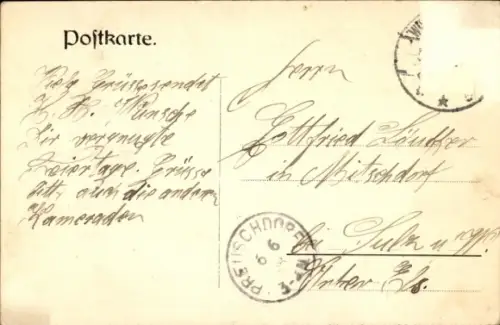 Postkarte.
Viele Grüsse sendet
Wünsche
Dir vergnügte
Feiertage. Grüsse
bitte auch die anderen
Kameraden
Herrn
Gottfried
in Mitschdorf
bei Sulz u/W
Unter Els.
PREUSCHDORF
6 6